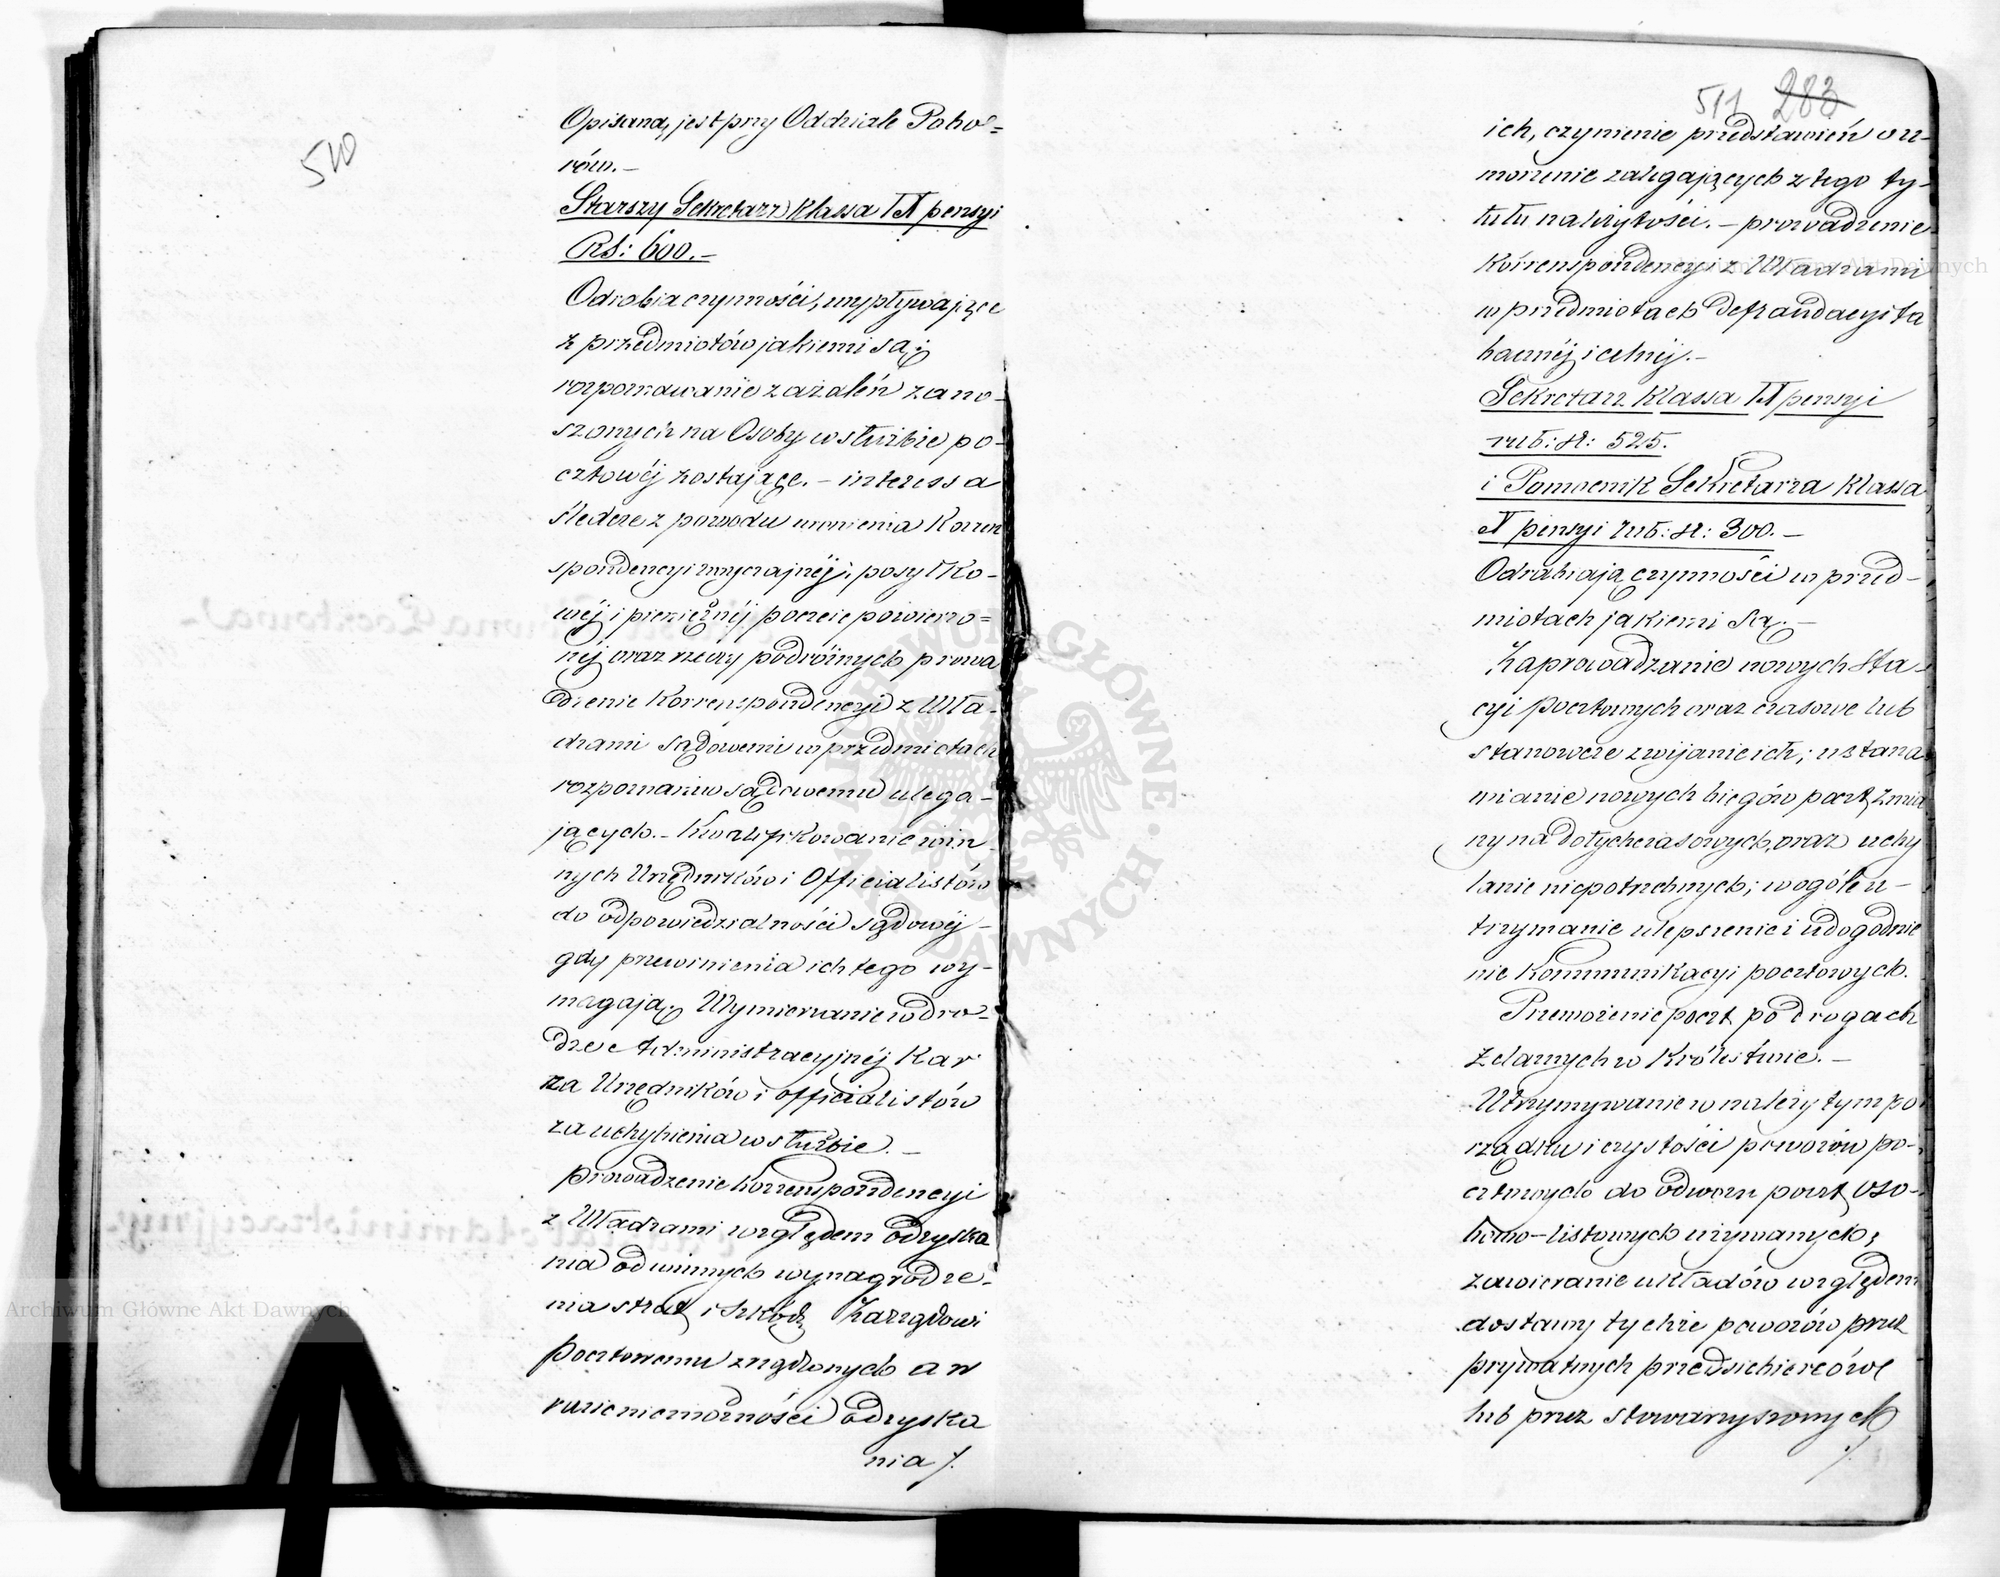 510
Opisaną jest przy Oddziale Pobo=
rów. –
Starszy Sekretarz klassa IX pensyi
Rs: 600. –
Odrabia czynności, wypływające
z przedmiotów jakiemi są:
rozpoznawanie zażaleń zano-
szonych na Osoby w służbie po-
cztowéj zostające. – interessa
śledcze z powodu uronienia Korren
spondencyi zwyczajnéj, posyłko-
wéj i pieniężnéj poczcie powierzo=
néj oraz rzeczy podróżnych prowa
dzenie Korrenspondencyi z Wła-
dzami sądowemi w przedmiotach
rozpoznaniu sądowemu ulega-
jących. – Kwalifikowanie win
nych Urzędników i Officialistów
do odpowiedzialności sądowéj –
gdy przewinienia ich tego wy-
magają. Wymierzanie w dro-
dze Administracyjnéj Kar
na Urzędników i officialistów
za uchybienia w służbie. –
prowadzenie Korrenspondencyi
z Władzami względem odzyska
nia od winnych wynagrodze-
nia strat i szkód, Zarządowi
pocztowemu zrządzonych a w
razie niemożności odzyska
nia /.
511 283
ich, czynienie przedstawień o u-
morzenie zalegających z tego ty-
tułu należytości. – prowadzenie
Korrenspondencyi z Władzami
w przedmiotach defraudacyi ta
bacznéj i celnéj. –
Sekretarz klassa IX pensyi
rub: sr: 525.
i Pomocnik Sekretarza klassa
X pensyi rub: sr: 300. –
Odrabiają czynności w przed-
miotach jakiemi Są. –
Zaprowadzanie nowych Sta-
cyi pocztowych oraz czasowe lub
stanowcze zwijanie ich; ustana
wianie nowych biegów poczt, zmia
ny na dotychczasowych, oraz uchy
lanie niepotrzebnych; wogóle u-
trzymanie ulepszenie i udogodnie
nie Kommunikacyi pocztowych.
Przewożenie poczt po drogach
żelaznych w Królestwie. –
Utrzymywanie w należytym po
rządku i czystości powozów po-
cztowych do odwozu poczt oso-
bowo-listowych używanych;
zawieranie układów względem
dostawy tychże powozów przez
prywatnych przedsiebierców
lub przez stowarzyszonych
/.
Archiwum Główne Akt Dawnych
Akt Dawnych
ARCHIWUM GŁÓWNE AKT DAWNYCH